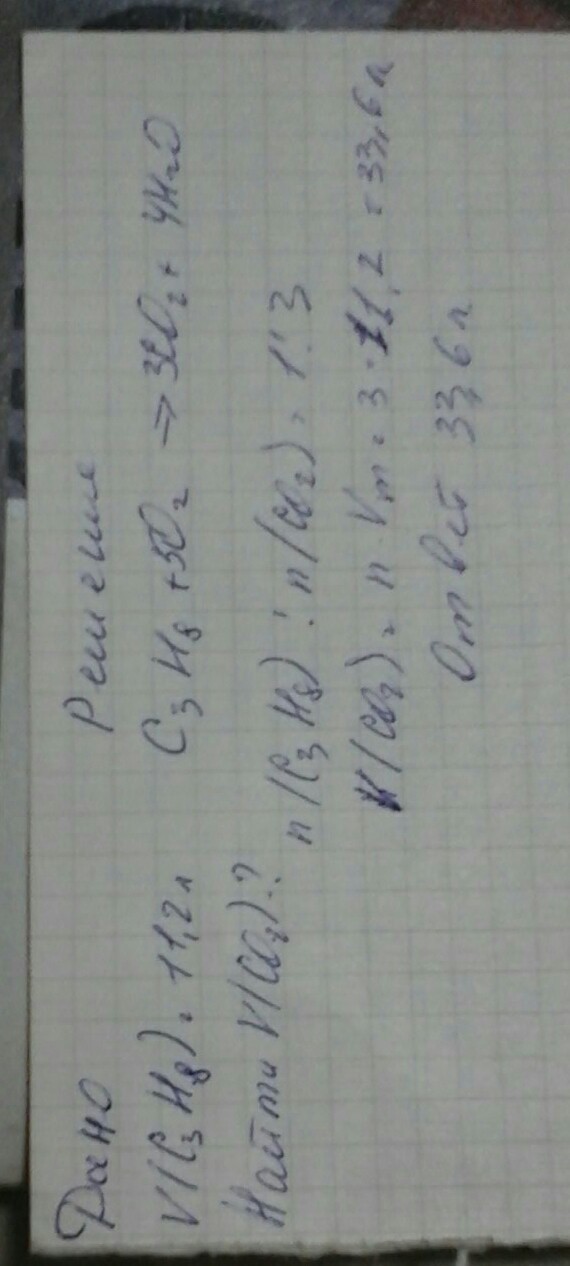 Дано
V(C3H8) = 11,2л
Найти V(CO2)-?
Решение
C3H8 + 5O2 => 3CO2 + 4H2O
n(C3H8) : n(CO2) = 1:3
V(CO2) = n · Vm = 3 · 11,2 = 33,6л
Ответ 33,6л